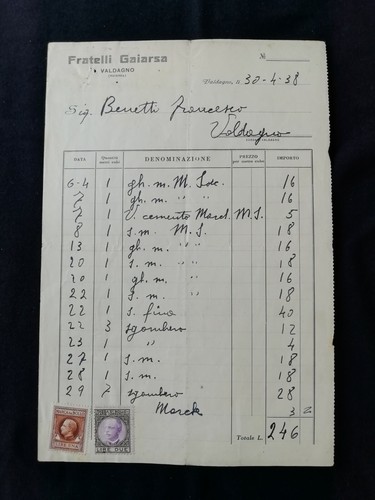 Fratelli Gaiarsa
VALDAGNO
№
Valdagno, li 30-4-38
Sig. Benetti Francesco
Valdagno
DATA Quantità DENOMINAZIONE PREZZO IMPORTO
6-4 1 gh. m. M. Sdc. 16
7 1 gh. m. " " 16
7 1 V. cemento Marel. M.S. 5
8 1 s. m. M. S. 18
13 1 gh. m. " " 16
20 1 s. m. " " 18
20 1 gh. m. " 16
22 1 s. m. " 18
22 1 s. fina 40
22 3 sgombero 12
23 1 " 4
27 1 s. m. 18
28 1 s. m. 18
29 7 sgombero 28
3
Totale L. 246
LIRE UNA
LIRE DUE